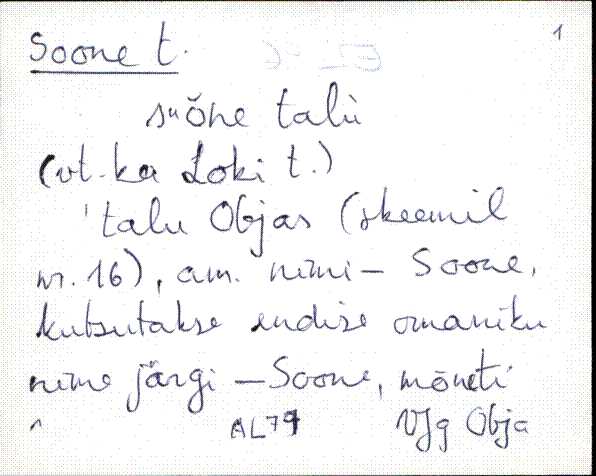 Soone t.
1
sᵘŏne talù
(vt. ka Loki t.)
'talu Objas (skeemil
nr. 16), am. nimi – Soone,
kutsutakse endise omaniku
nime järgi – Soone, mõneti
^ AL79 VJg Obja